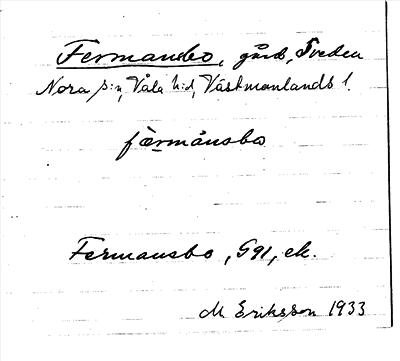 Fermansbo, gård, Sveden
Nora s:n, Våla h:d, Västmanlands l.
færmånsbω
Fermansbo, G91, ek.
M Eriksson 1933